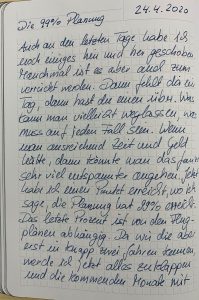 24.4.2020
Die 99% Planung
Auch an den letzten Tage habe ich
noch einiges hin und her geschoben
Manchmal ist es aber auch zum
verrückt werden. Dann fehlt dir ein
Tag, dann hast du einen übrig. Was
kann man vielleicht weglassen, was
muss auf jeden Fall sein. Wenn
man ausreichend Zeit und Geld
hätte, dann könnte man das ganze
sehr viel entspannter angehen. Jetzt
habe ich einen Punkt erreicht, wo ich
sage, die Planung hat 99% erreicht.
Das letzte Prozent ist von den Flug-
plänen abhängig. Da wir die aber
erst in knapp zwei Jahren kennen,
werde ich jetzt alles
und die kommenden Monate mit